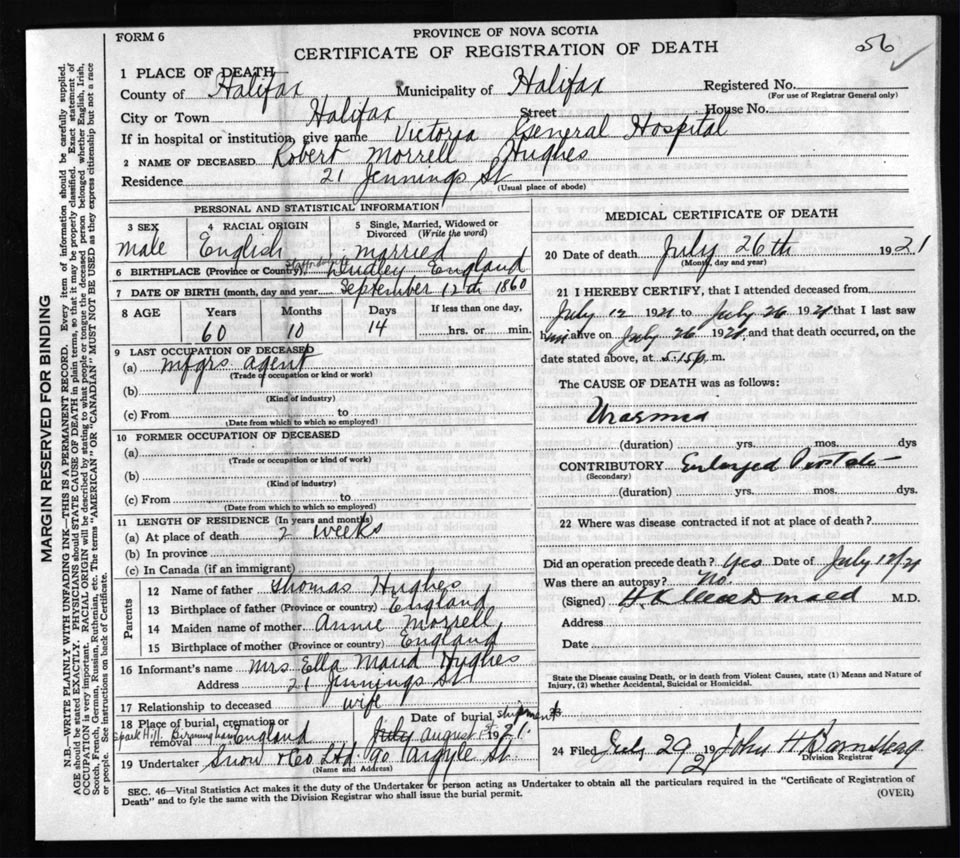 FORM 6
PROVINCE OF NOVA SCOTIA
CERTIFICATE OF REGISTRATION OF DEATH
56
MARGIN RESERVED FOR BINDING
N.B.—WRITE PLAINLY WITH UNFADING INK—THIS IS A PERMANENT RECORD. Every item of information should be carefully supplied.
AGE should be stated EXACTLY. PHYSICIANS should STATE CAUSE OF DEATH in plain terms, so that it may be properly classified. Exact statement of
OCCUPATION is very important. RACIAL ORIGIN will be described by stating to what people or tongue the deceased person belonged whether English, Irish,
Scotch, French, German, Russian, Ruthenian, etc. The terms "AMERICAN" OR "CANADIAN" MUST NOT BE USED as they express citizenship but not a race
or people. See instructions on back of Certificate.
1 PLACE OF DEATH
County of Halifax Municipality of Halifax Registered No.
(For use of Registrar General only)
City or Town Halifax Street House No.
If in hospital or institution, give name Victoria General Hospital
2 NAME OF DECEASED Robert Morrell Hughes
Residence 21 Jennings St
(Usual place of abode)
PERSONAL AND STATISTICAL INFORMATION
3 SEX 4 RACIAL ORIGIN 5 Single, Married, Widowed or Divorced (Write the word)
male English married
6 BIRTHPLACE (Province or Country) Dudley England
7 DATE OF BIRTH (month, day and year) September 12th 1860
8 AGE Years Months Days If less than one day,
60 10 14 hrs. or min.
9 LAST OCCUPATION OF DECEASED
(a) mfgrs agent
(Trade or occupation or kind or work)
(b)
(Kind of industry)
(c) From to
(Date from which to which so employed)
10 FORMER OCCUPATION OF DECEASED
(a)
(Trade or occupation or kind of work)
(b)
(Kind of industry)
(c) From to
(Date from which to which so employed)
11 LENGTH OF RESIDENCE (In years and months)
(a) At place of death 2 weeks
(b) In province
(c) In Canada (if an immigrant)
Parents
12 Name of father Thomas Hughes
13 Birthplace of father (Province or country) England
14 Maiden name of mother Annie Morrell
15 Birthplace of mother (Province or country) England
16 Informant's name Mrs Ella Maud Hughes
Address 21 Jennings St
17 Relationship to deceased wife
18 Place of burial, cremation or removal Spark Hill, Birmingham England
Date of burial shipment July August 1st 1921
19 Undertaker Snow & Co Ltd 90 Argyle St
(Name and Address)
MEDICAL CERTIFICATE OF DEATH
20 Date of death July 26th 1921
(Month, day and year)
21 I HEREBY CERTIFY, that I attended deceased from
July 12 1921 to July 26 1921 that I last saw
him alive on July 26 1921, and that death occurred, on the
date stated above, at 5.15 p. m.
The CAUSE OF DEATH was as follows:
Uraemia
(duration) yrs. mos. dys
CONTRIBUTORY Enlarged Prostate
(Secondary)
(duration) yrs. mos. dys.
22 Where was disease contracted if not at place of death?
Did an operation precede death? Yes Date of July 12/21
Was there an autopsy? No.
(Signed) H K MacDonald M.D.
Address
Date
State the Disease causing Death, or in death from Violent Causes, state (1) Means and Nature of
Injury, (2) whether Accidental, Suicidal or Homicidal.
24 Filed July 29 1921 John H Barnstead
Division Registrar
SEC. 46—Vital Statistics Act makes it the duty of the Undertaker or person acting as Undertaker to obtain all the particulars required in the "Certificate of Registration of
Death" and to fyle the same with the Division Registrar who shall issue the burial permit.
(OVER)